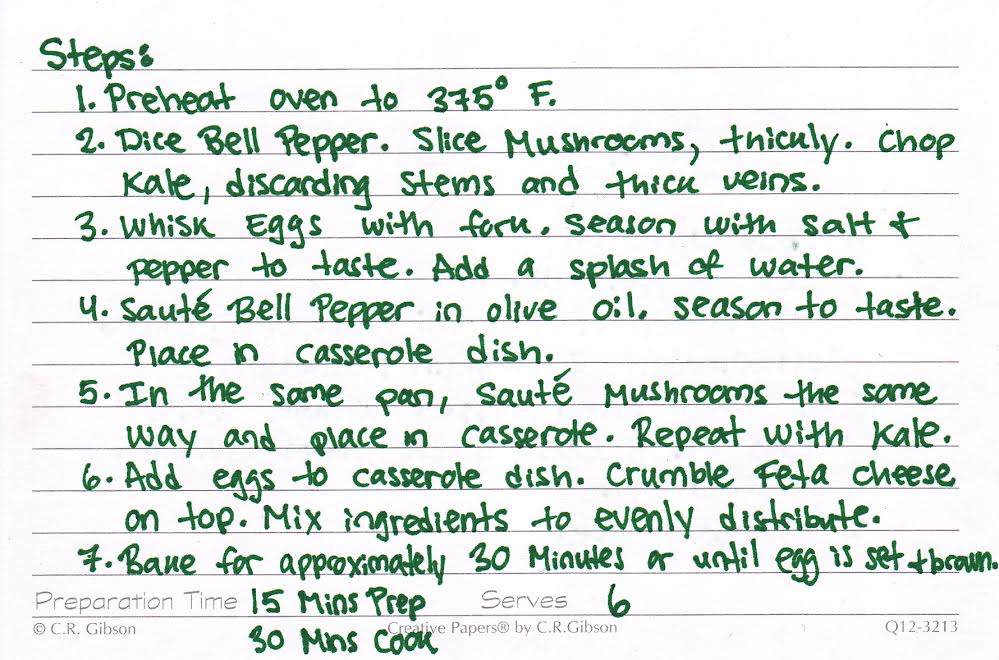 Steps:
1. Preheat oven to 375° F.
2. Dice Bell Pepper. Slice Mushrooms, thickly. Chop
Kale, discarding stems and thick veins.
3. Whisk Eggs with fork. Season with salt +
pepper to taste. Add a splash of water.
4. Sauté Bell Pepper in olive oil. season to taste.
Place in casserole dish.
5. In the same pan, sauté Mushrooms the same
way and place in casserole. Repeat with Kale.
6. Add eggs to casserole dish. Crumble Feta cheese
on top. Mix ingredients to evenly distribute.
7. Bake for approximately 30 Minutes or until egg is set + brown.
Preparation Time 15 Mins Prep Serves 6
30 Mins Cook
© C.R. Gibson Creative Papers® by C.R.Gibson Q12-3213